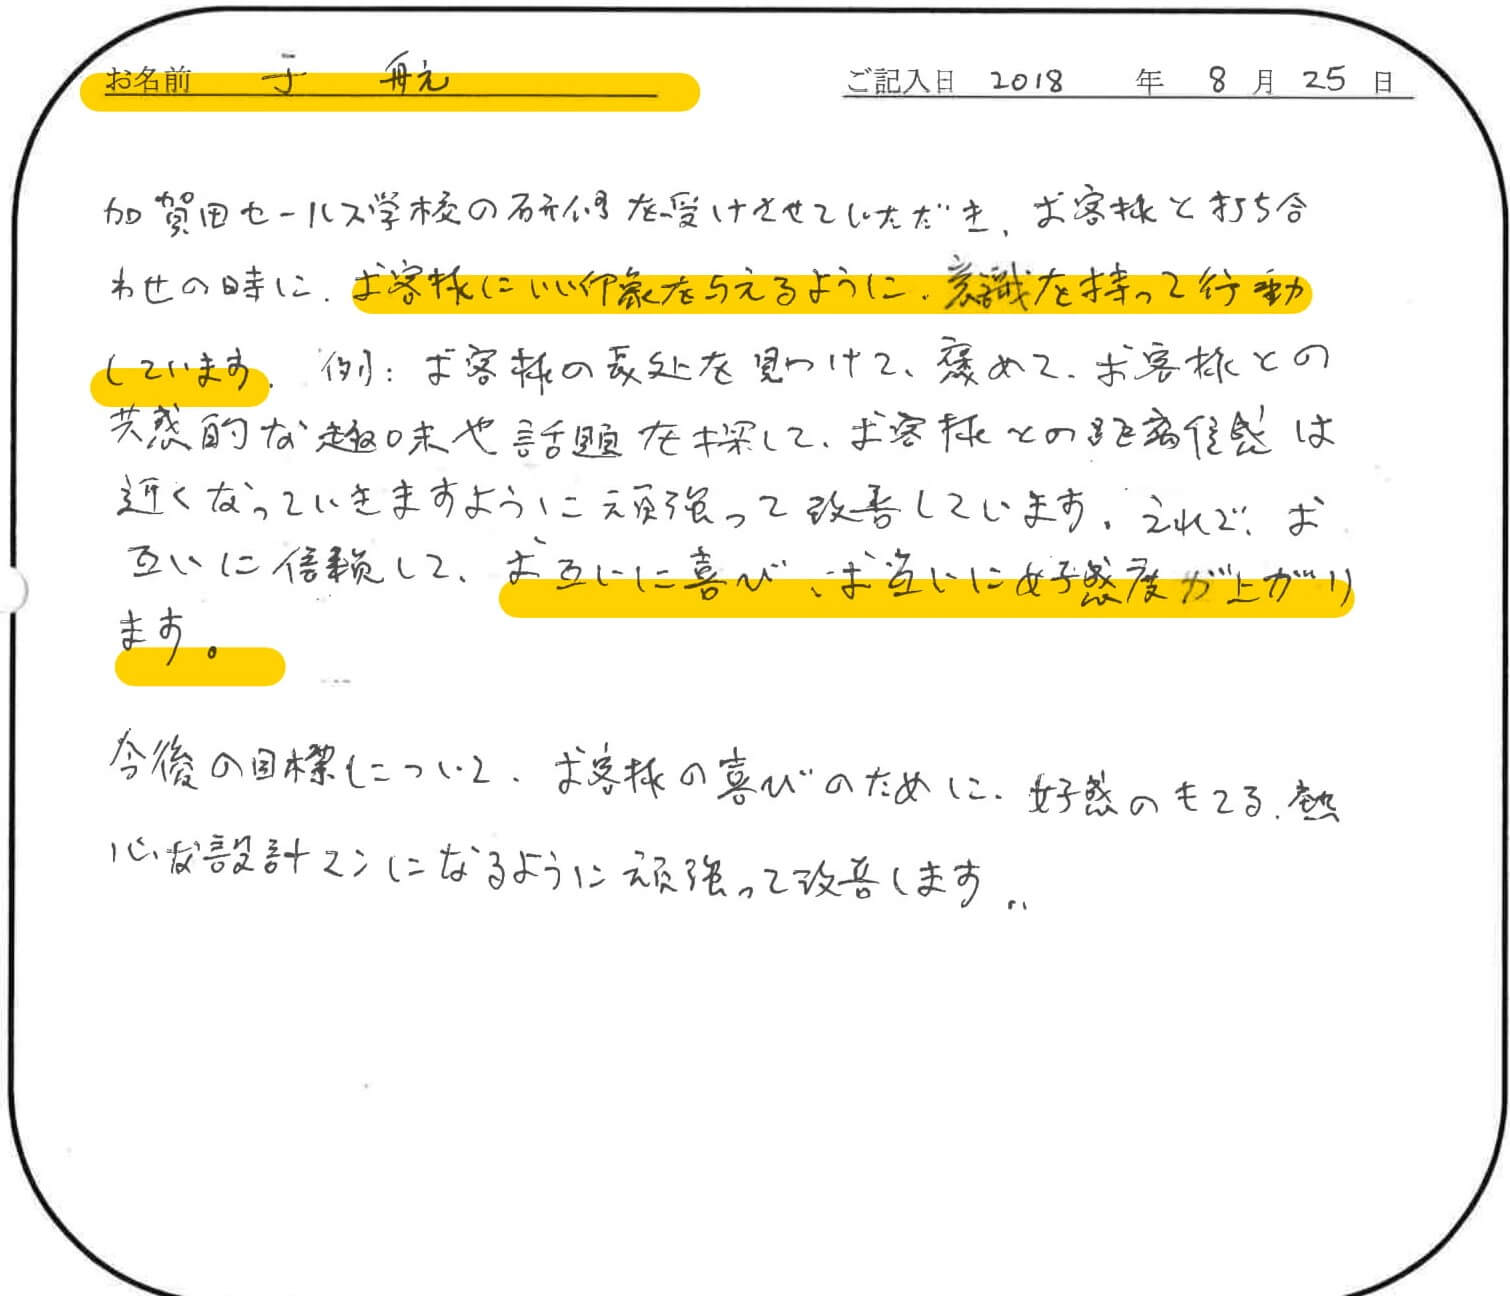 お名前 于 航 ご記入日 2018 年 8 月 25 日
加賀田セールス学校の研修を受けさせていただき、お客様と打ち合
わせの時に、お客様にいい印象を与えるように、意識を持って行動
しています。例：お客様の長処を見つけて、褒めて、お客様との
共感的な趣味や話題を探して、お客様との距离信感は
近くなっていきますように頑強って改善しています。それで、お
互いに信頼して、お互いに喜び、お互いに好感度が上がり
ます。
今後の目標について、お客様の喜びのために、好感のもてる、熱
心な設計マンになるように頑強って改善します。